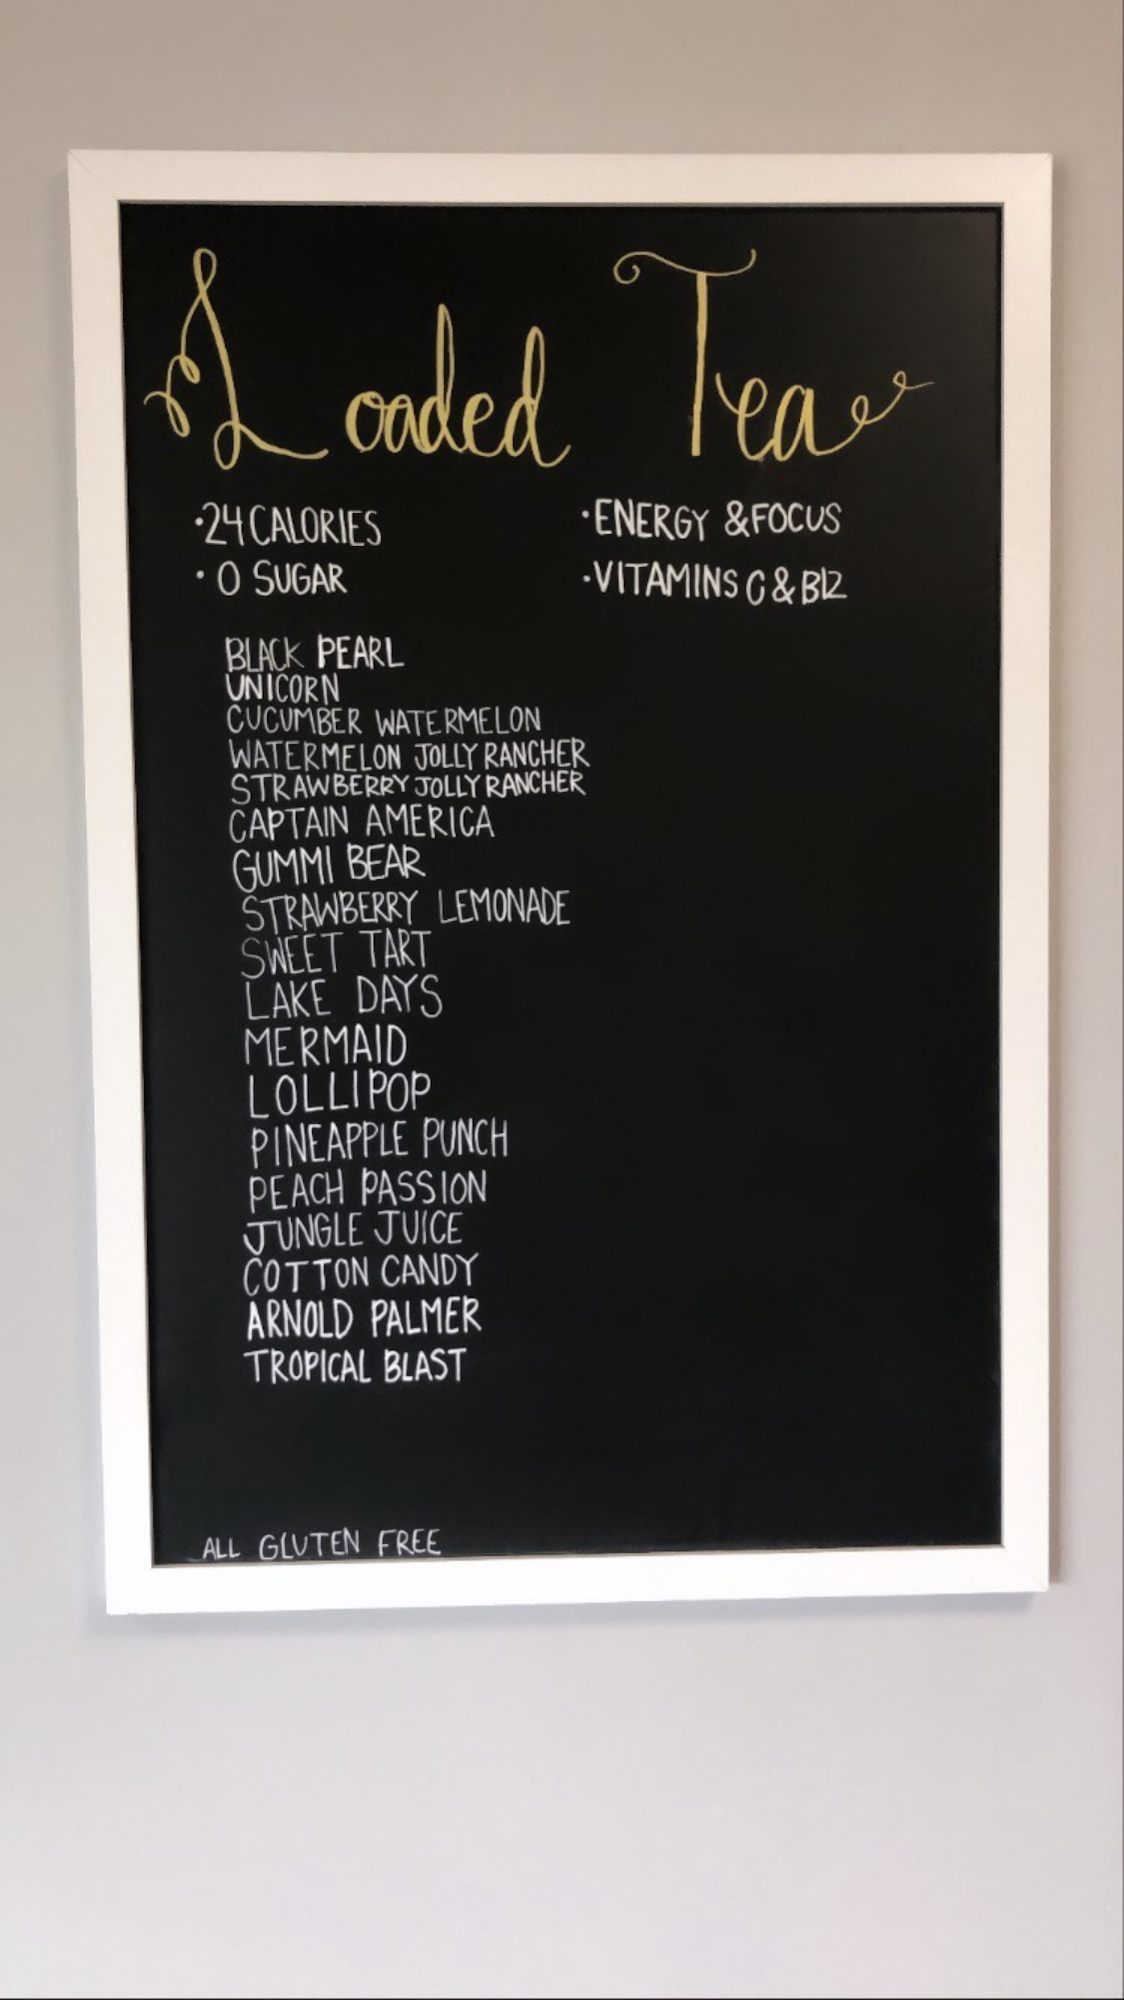 Loaded Tea
•24 CALORIES
•ENERGY & FOCUS
• 0 SUGAR
•VITAMINS C & B12
BLACK PEARL
UNICORN
CUCUMBER WATERMELON
WATERMELON JOLLY RANCHER
STRAWBERRY JOLLY RANCHER
CAPTAIN AMERICA
GUMMI BEAR
STRAWBERRY LEMONADE
SWEET TART
LAKE DAYS
MERMAID
LOLLIPOP
PINEAPPLE PUNCH
PEACH PASSION
JUNGLE JUICE
COTTON CANDY
ARNOLD PALMER
TROPICAL BLAST
ALL GLUTEN FREE